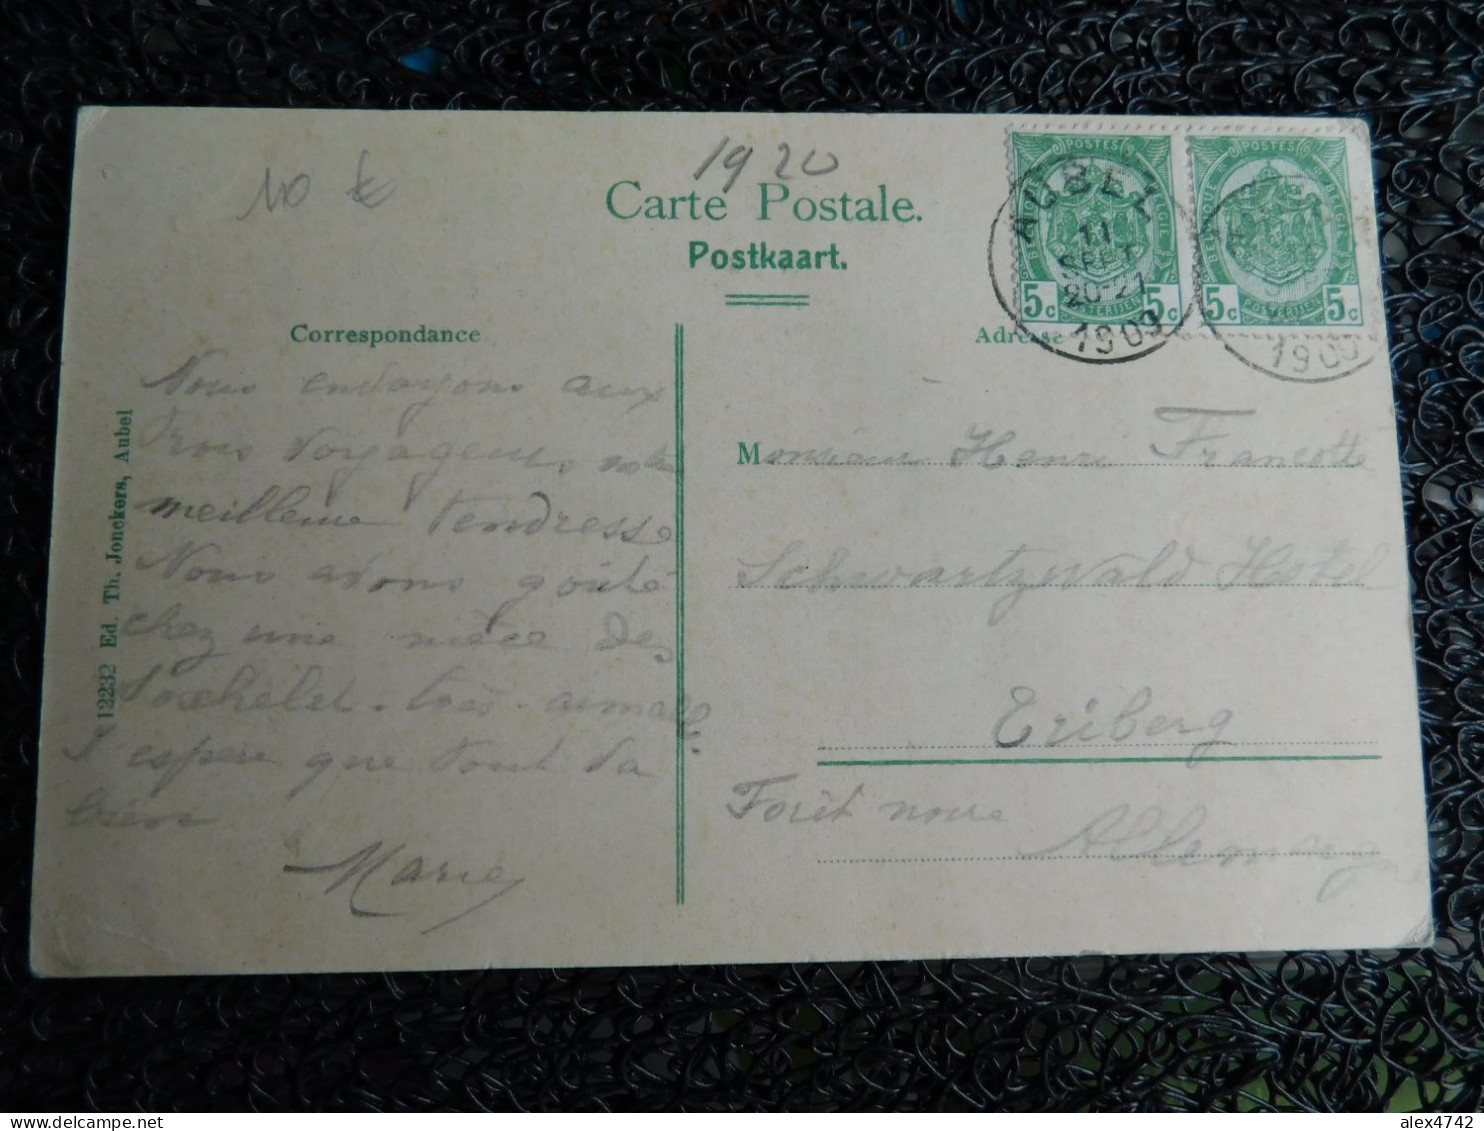 1920
10 €
Carte Postale.
Postkaart.
POSTES
BELGIQUE
BELGIE
POSTERIJEN
5c 5c
POSTES
BELGIQUE
BELGIE
POSTERIJEN
5c 5c
AUBEL
11
SEPT
20-21
1909
1909
Correspondance
Adresse
12232 Ed. Th. Jonckers, Aubel
Nous envoyons aux
trois voyageurs notre
meilleure tendresse
Nous avons goûté
chez une nièce des
très
J'espère que tout va
bien
Marie
Monsieur Henri Francotte
Schwartzwald Hotel
Eriberg
Forêt noire
Allemagne
alex4742